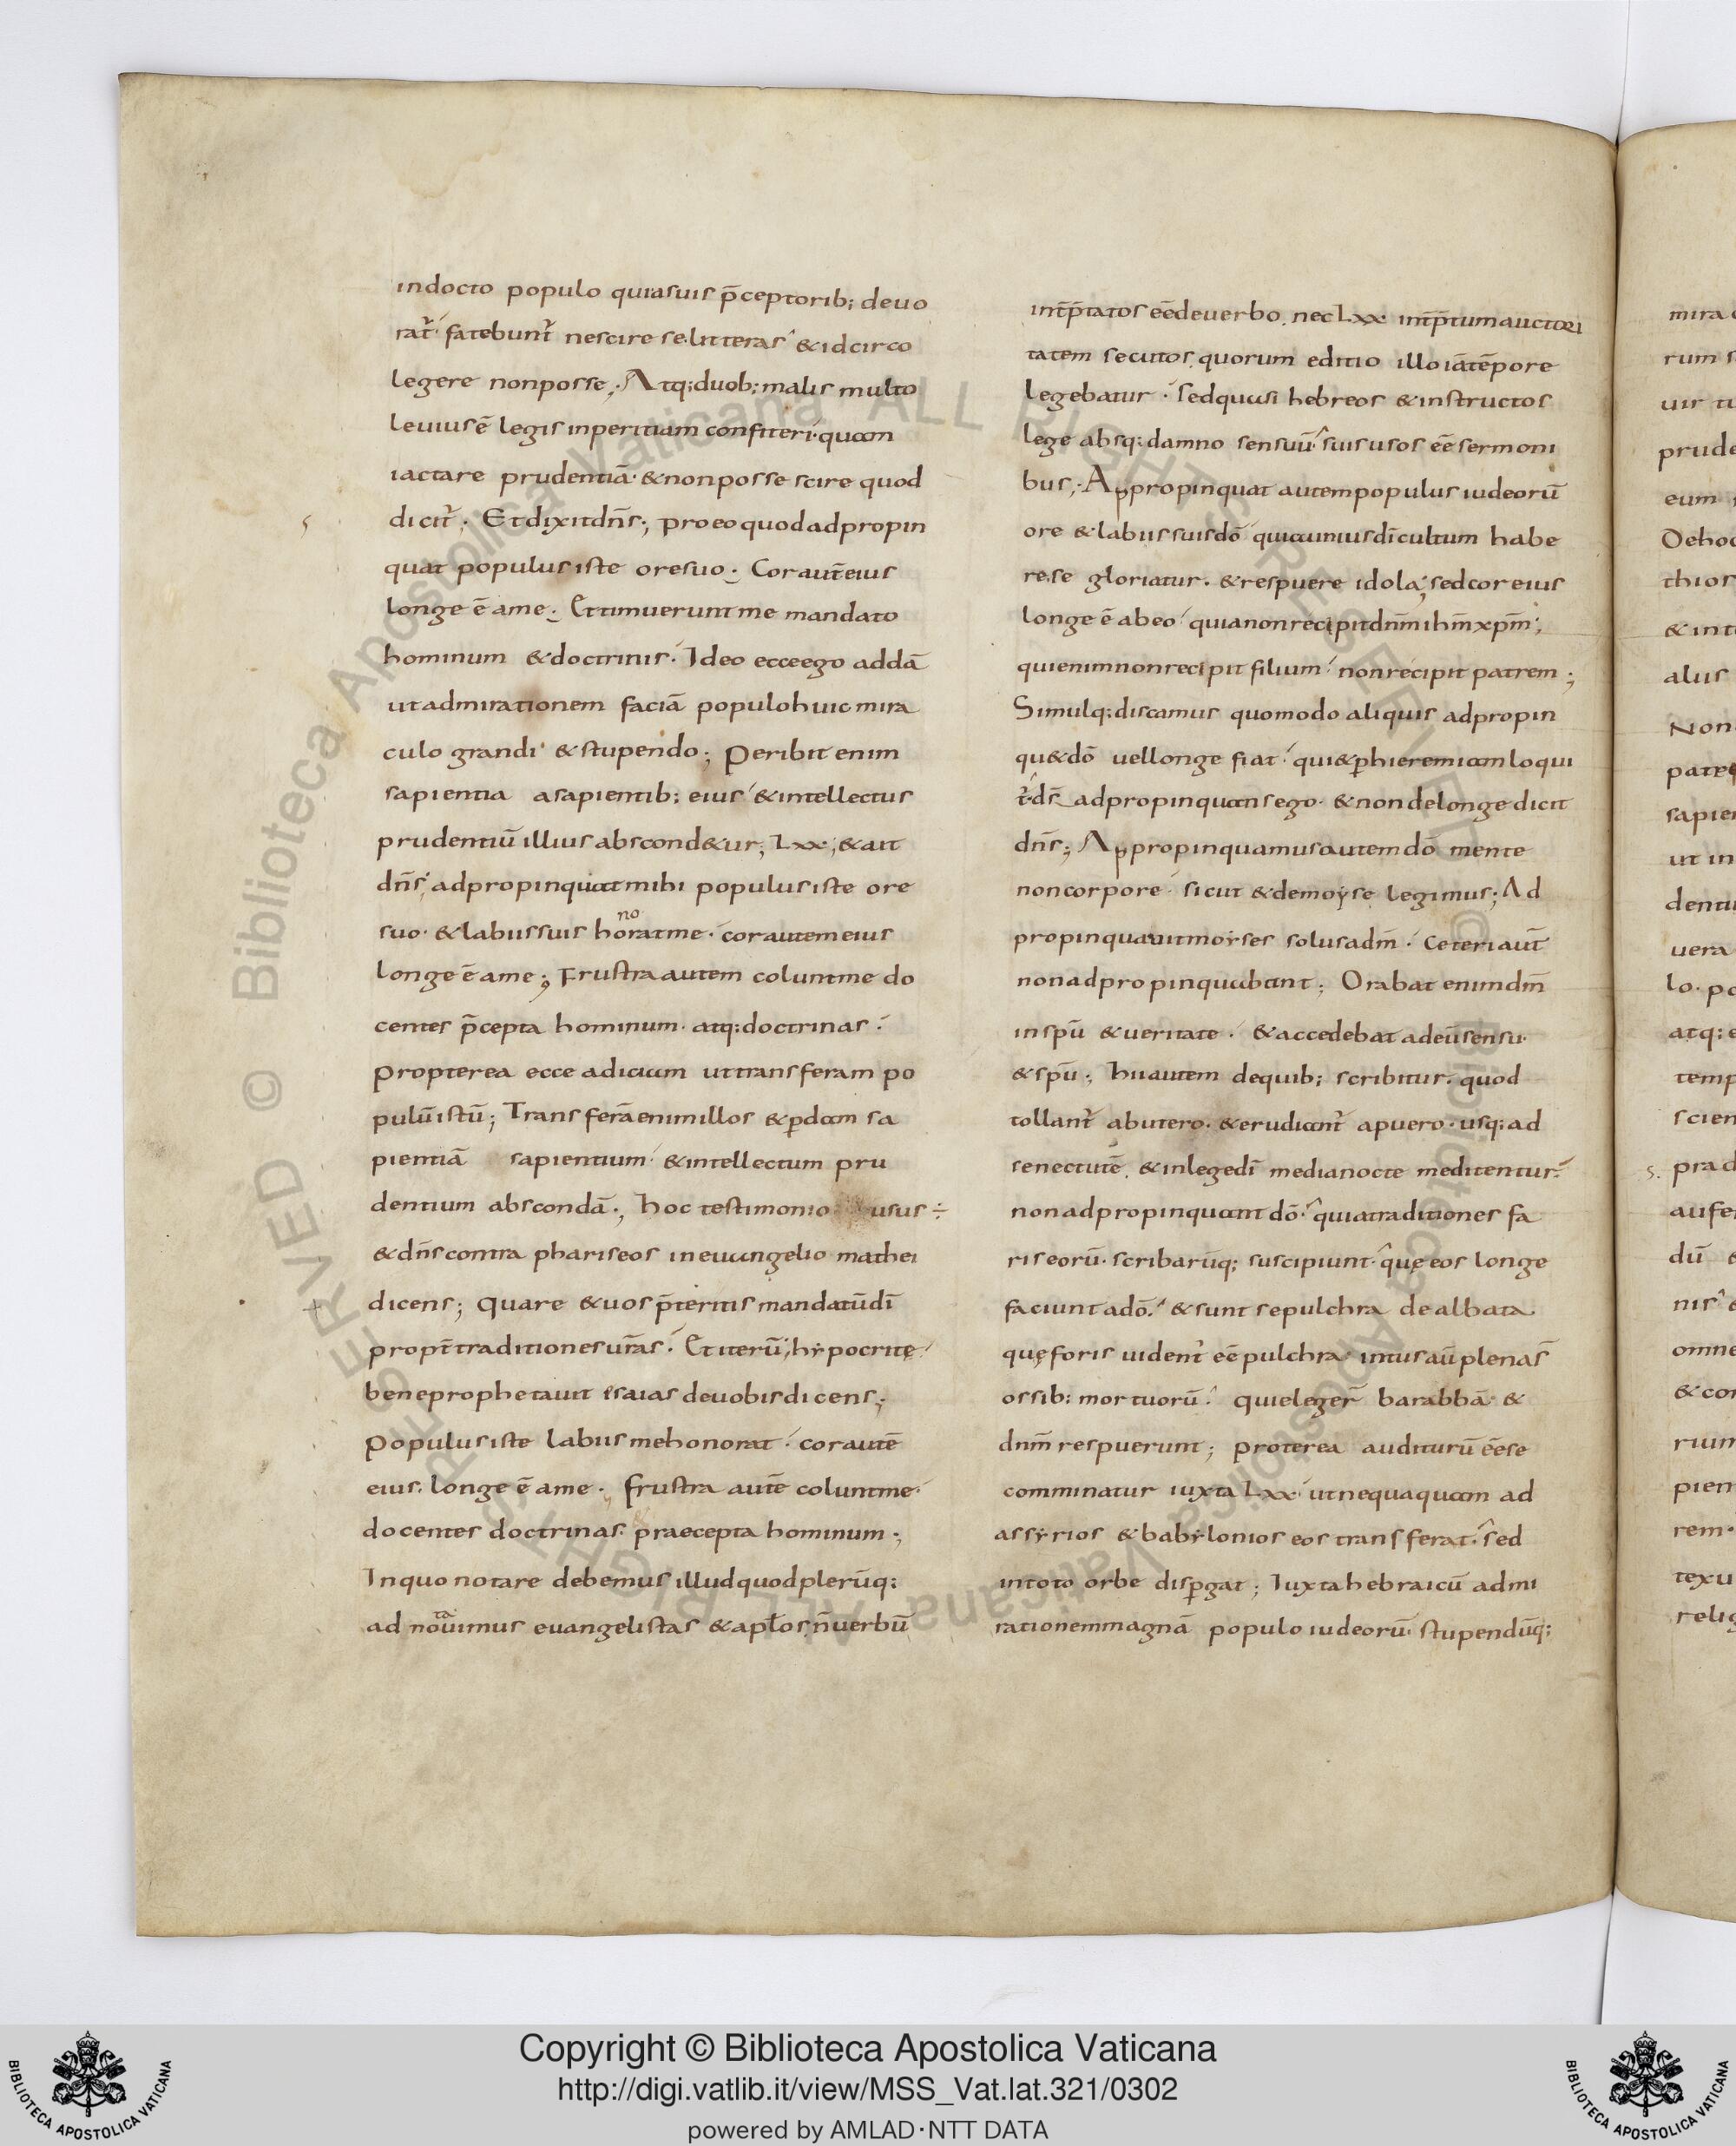 indocto populo quia suis p̄ceptorib; deuo
rat᷑ fatebunt᷑ nescire se litteras & idcirco
legere non posse; Atq; duob; malis multo
leuius ē legis inperitiam confiteri· quam
iactare prudentiā· & non posse scire quod
dicit᷑· Et dixit dn̄s; pro eo quod adpropin
quat populus iste ore suo· Cor aut̄ eius
longe ē a me· Et timuerunt me mandato
hominum & doctrinis· Ideo ecce ego addā
ut admirationem faciā populo huic mira
culo grandi & stupendo; Peribit enim
sapientia a sapientib; eius & intellectus
prudentiū illius abscond&ur; Lxx; & ait
dn̄s; adpropinquat mihi populus iste ore
suo· & labiis suis horat me· cor autem eius
no
longe ē a me; Frustra autem colunt me do
centes p̄cepta hominum· atq; doctrinas·
Propterea ecce adiciam ut transferam po
pulū istū; Transferā enim illos & ꝑdam sa
pientiā sapientium· & intellectum pru
dentium abscondā·, hoc testimonio usus ÷
& dn̄s contra phariseos in euangelio mathei
dicens; Quare & uos p̄teritis mandatū dī
propt̄ traditiones ur̄as· Et iterū; hẏpocritę
bene prophetauit esaias de uobis dicens;
Populus iste labiis me honorat· cor autē
eius· longe ē a me· frustra autē colunt me·
docentes doctrinas· praecepta hominum·,
In quo notare debemus illud quod plerūq;
ad nouimus euangelistas & apl̄os n̄ uerbū
ta
int̄p̄tatos eē de uerbo, nec Lxx int̄p̄tum auctori
tatem secutos, quorum editio illo iā tēpore
legebatur· sed quasi hebreos & instructos
lege absq; damno sensuū suis usos eē sermoni
bus;· Appropinquat autem populus iudeorū
ore & labiis suis dō quia unius dī cultum habe
re se gloriatur· & respuere idola; sed cor eius
longe ē ab eo quia non recipit dn̄m ihm̄ xpm̄;
qui enim non recipit filium non recipit patrem;
Simulq; discamus quomodo aliquis adpropin
qu& dō uel longe fiat· qui & ꝑ hieremiam loqui
t᷑· ds̄ adpropinquans ego· & non de longe dicit
dn̄s; Appropinquamus autem dō mente
non corpore· sicut & de moẏse legimus; Ad
propinquauit moẏses solus ad dm̄· Ceteri aut̄
non adpropinquabant; Orabat enim dm̄
in spū & ueritate· & accedebat ad eū sensu·
& spū; hii autem de quib; scribitur· quod
tollant᷑ ab utero· & erudiant᷑ a puero· usq; ad
senectutē, & in lege dī media nocte meditentur·
non adpropinquant dō· quia traditiones fa
riseorū· scribarūq; suscipiunt· quę eos longe
faciunt a dō· & sunt sepulchra dealbata
quę foris uident᷑ eē pulchra· intus aū plena s̄
ossib; mortuorū· qui eleger̄ barabbā· &
dnm̄ respuerunt; proterea auditurū eē se
comminatur iuxta Lxx· ut nequaquam ad
assẏrios & babẏlonios eos transferat· sed
in toto orbe disꝑgat; Iuxta hebraicū admi
rationem magnā populo iudeorū stupendūq;
Copyright © Biblioteca Apostolica Vaticana
http://digi.vatlib.it/view/MSS_Vat.lat.321/0302
powered by AMLAD·NTT DATA
BIBLIOTECA APOSTOLICA VATICANA
BIBLIOTECA APOSTOLICA VATICANA